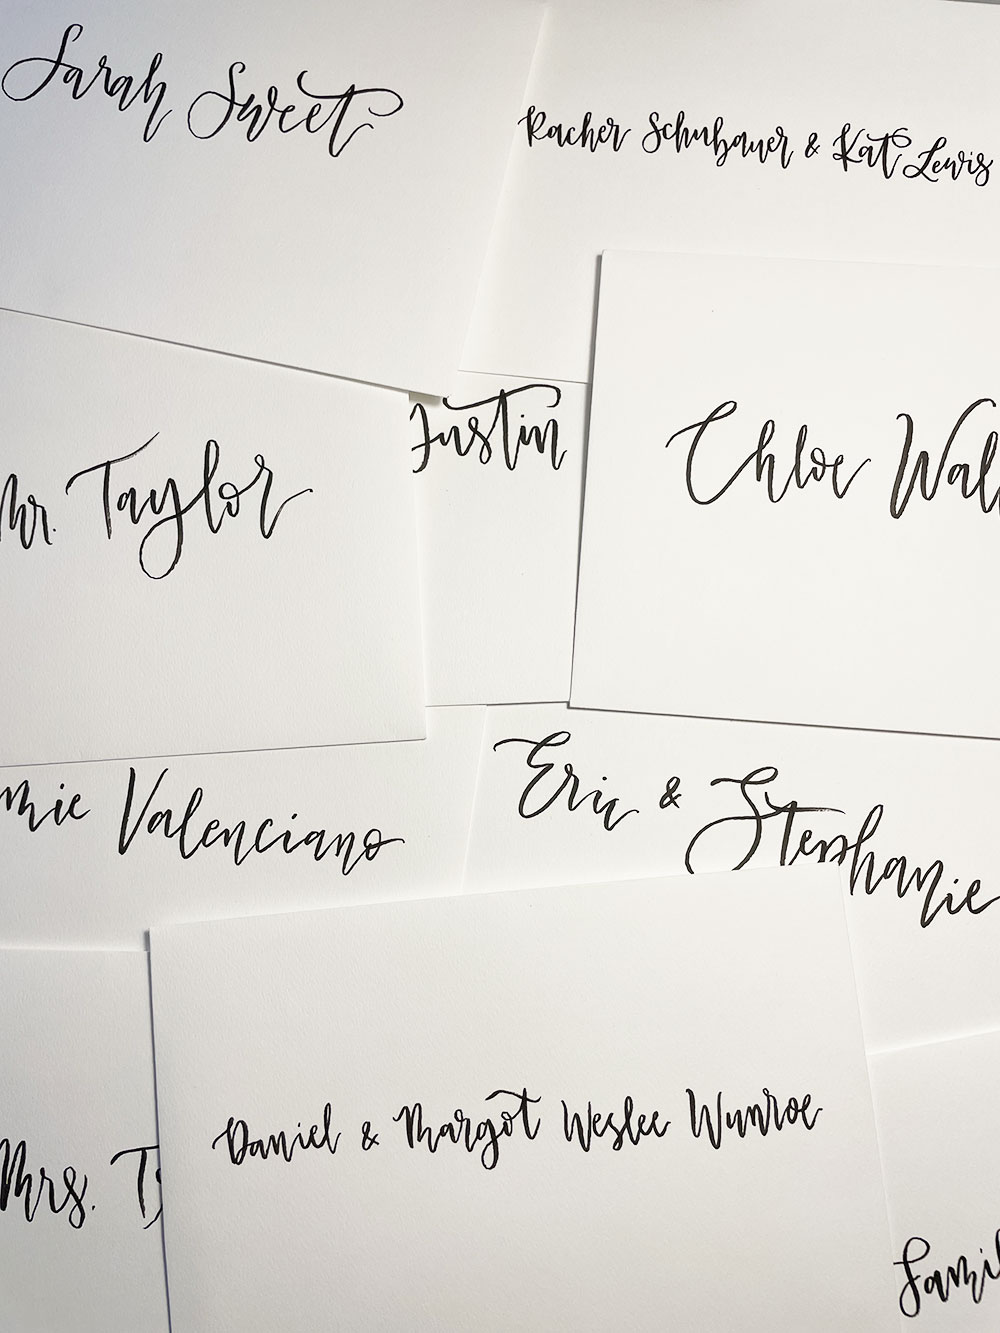 Sarah Sweet
Racher Schubauer & Kat Lewis
Justin
Chloe Wal
Mr. Taylor
mie Valenciano
Eric & Stephanie
Daniel & Margot Weslee Wunroe
Mrs. T
Famil